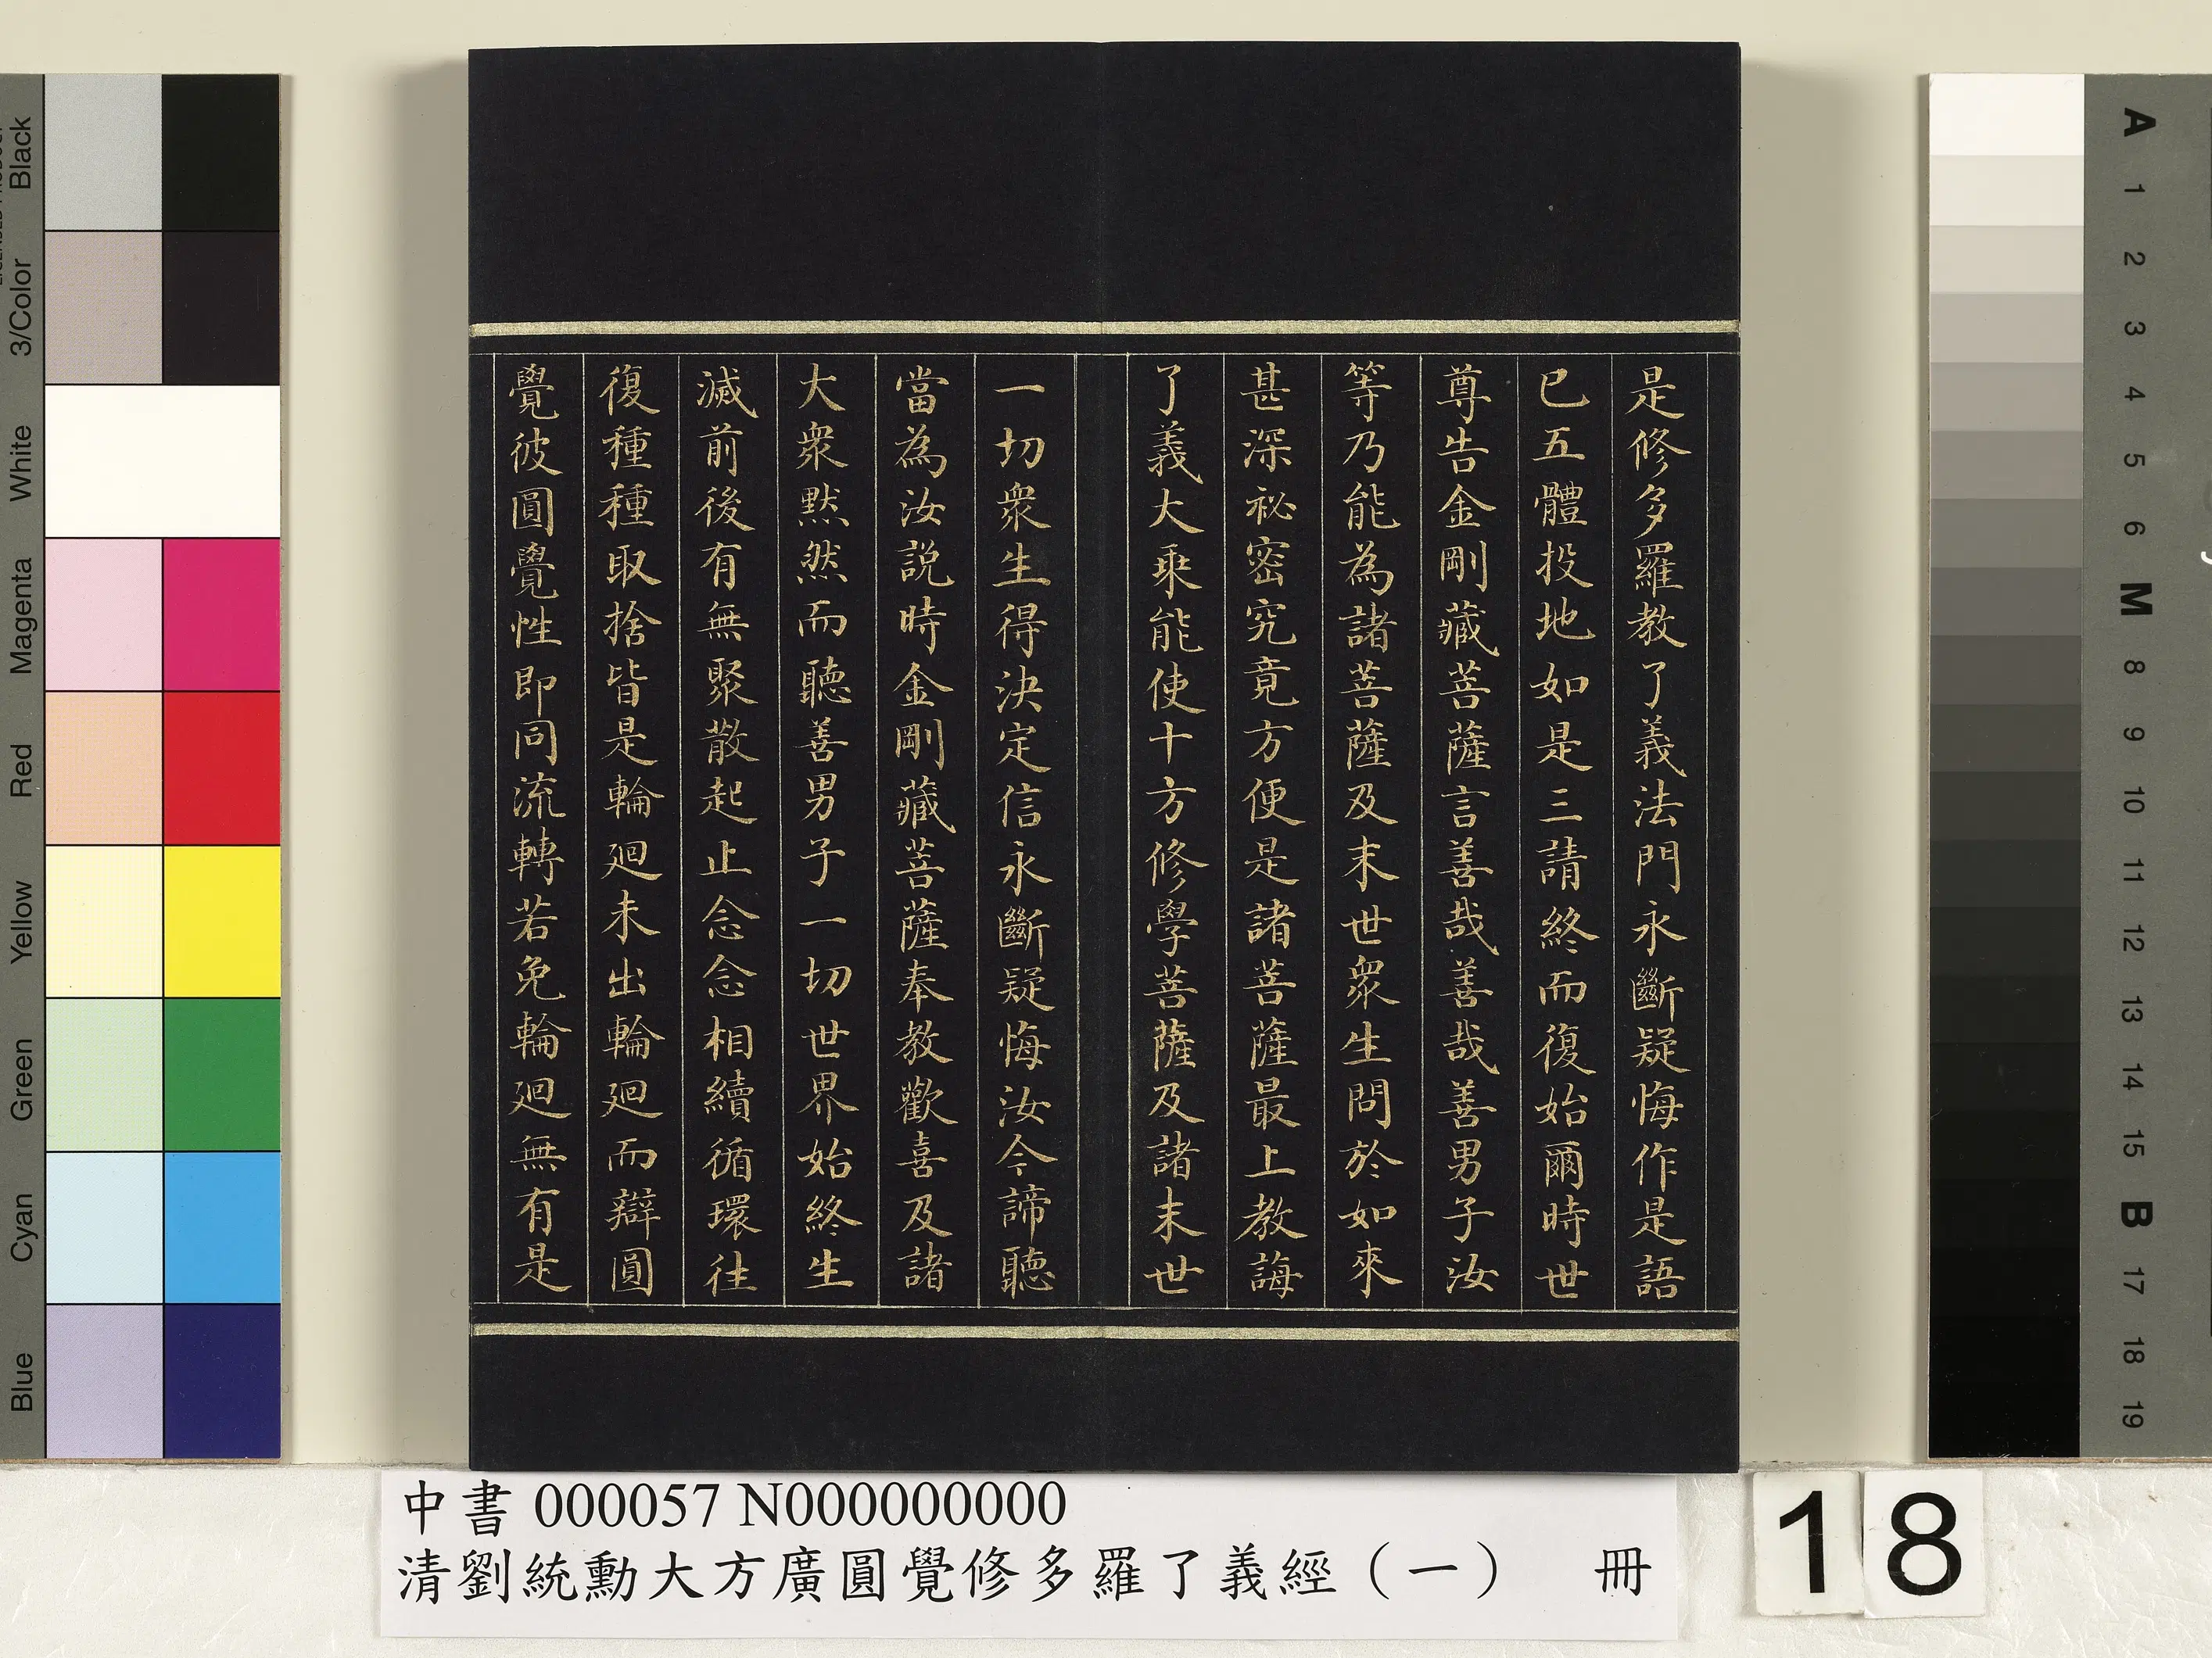 是修多羅教了義法門永斷疑悔作是語
已五體投地如是三請終而復始爾時世
尊告金剛藏菩薩言善哉善哉善男子汝
等乃能為諸菩薩及末世衆生問於如來
甚深祕密究竟方便是諸菩薩最上教誨
了義大乘能使十方修學菩薩及諸末世
一切衆生得決定信永斷疑悔汝今諦聽
當為汝説時金剛藏菩薩奉教歡喜及諸
大衆黙然而聽善男子一切世界始終生
滅前後有無聚散起止念念相續循環往
復種種取捨皆是輪廻未出輪廻而辯圓
覺彼圓覺性即同流轉若免輪廻無有是
中書 000057 N000000000
清劉統勳大方廣圓覺修多羅了義經（一） 冊
18
Black
3/Color
White
Magenta
Red
Yellow
Green
Cyan
Blue
A
1
2
3
4
5
6
M
8
9
10
11
12
13
14
15
B
17
18
19